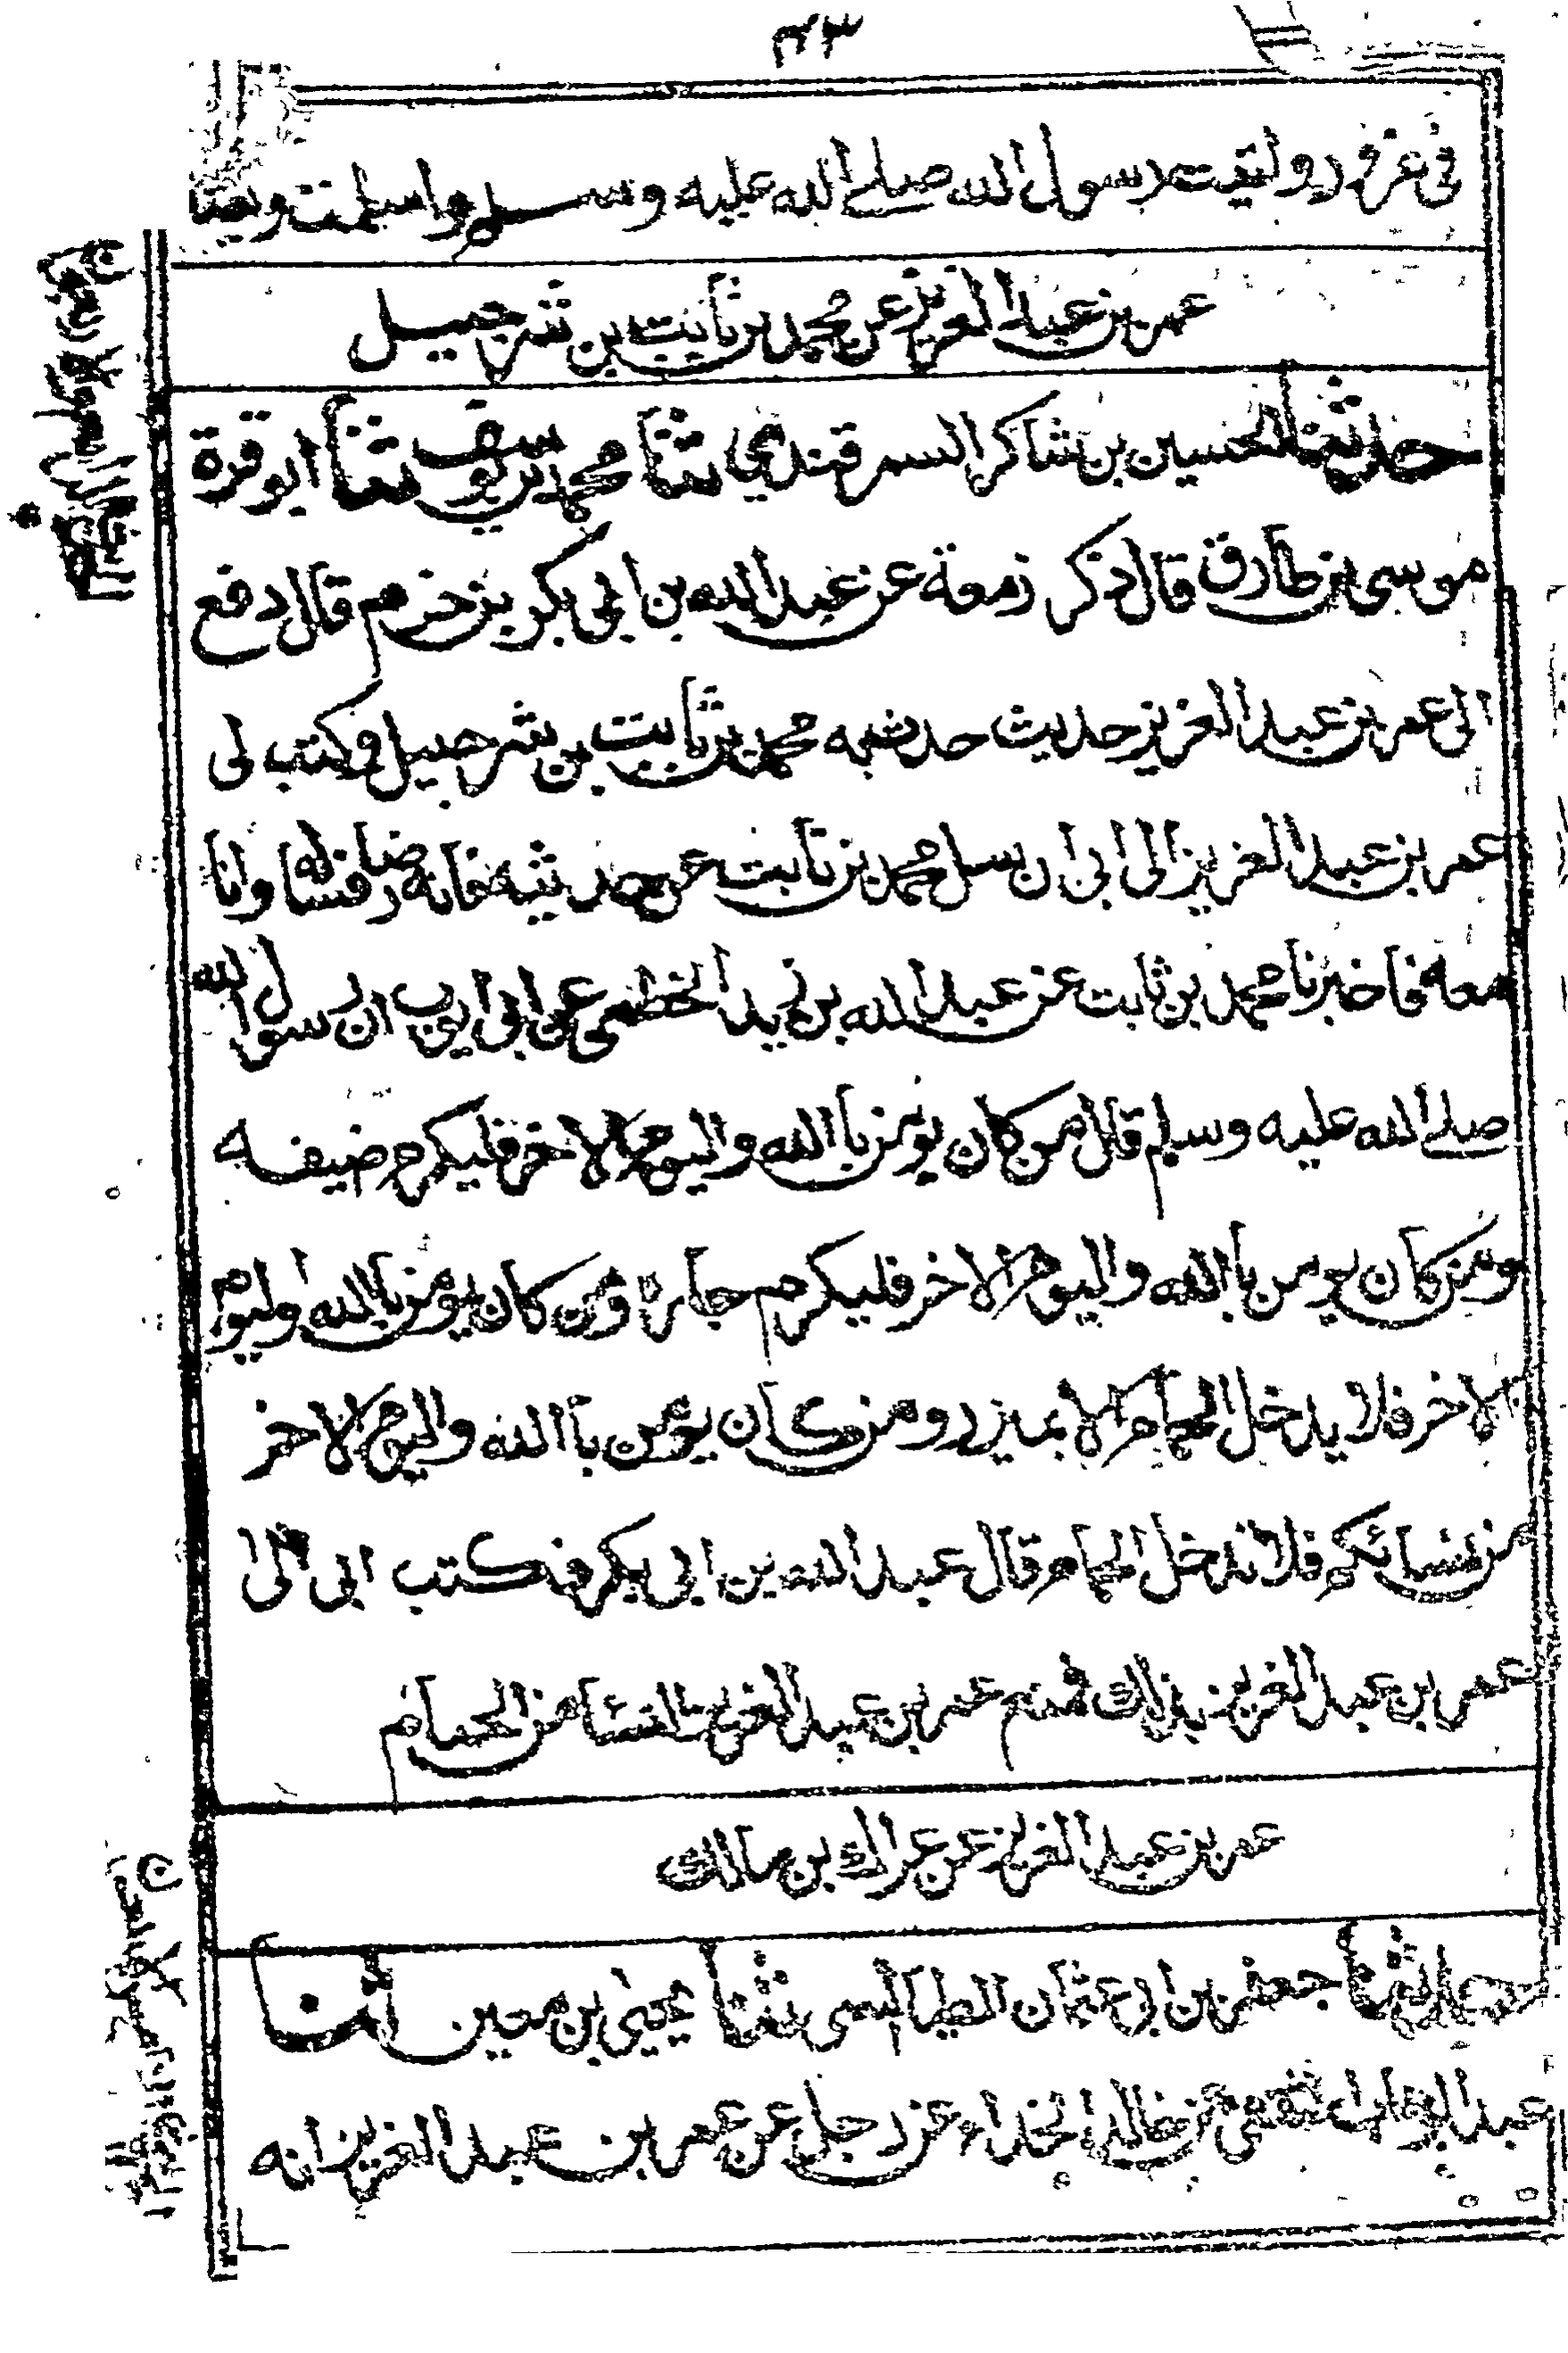 ٤٣
في عزفر ولقيت رسول الله صلے الله عليه وسلم واسلمت
عمر بن عبد العزيز عن محمد بن ثابت بن شرحبيل
حدثنا الحسين بن شاكر السمرقندي ثنا محمد بن يوسف ثنا ابو قرة
موسى بن طارق قال ذكر زمعة عن عبد الله بن ابي بكر بن حزم قال دفع
الى عمر بن عبد العزيز حديث حدث به محمد بن ثابت بن شرحبيل فكتب لى
عمر بن عبد العزيز الى ابى ان سل محمد بن ثابت عن حديثه فانه رضا فساله وانا
معه فاخبرنا محمد بن ثابت عن عبد الله بن يزيد الخطمى عن ابى ايوب ان رسول الله
صلے الله عليه وسلم قال من كان يومن با الله واليوم الاخر فليكرم ضيفه
ومن كان يومن با الله واليوم الاخر فليكرم جاره ومن كان يومن با الله وليوم
الاخر فلا يدخل الحمام الا بميزر ومن كان يومن با الله واليوم الاخر
من نسائكم فلا تدخل الحمام قال عبد الله بن ابي بكر فكتب ابى الى
عمر بن عبد العزيز بذلك فمنع عمر بن عبد العزيز النسا من الحمام
عمر بن عبد العزيز عن عراك بن مالك
حدثنا جعفر بن ابى عثمان الطيالسى ثنا يحيى بن معين انا
عبد الوهاب الثقفى عن خالد الحذاء عن رجل عن عمر بن عبد العزيز انه